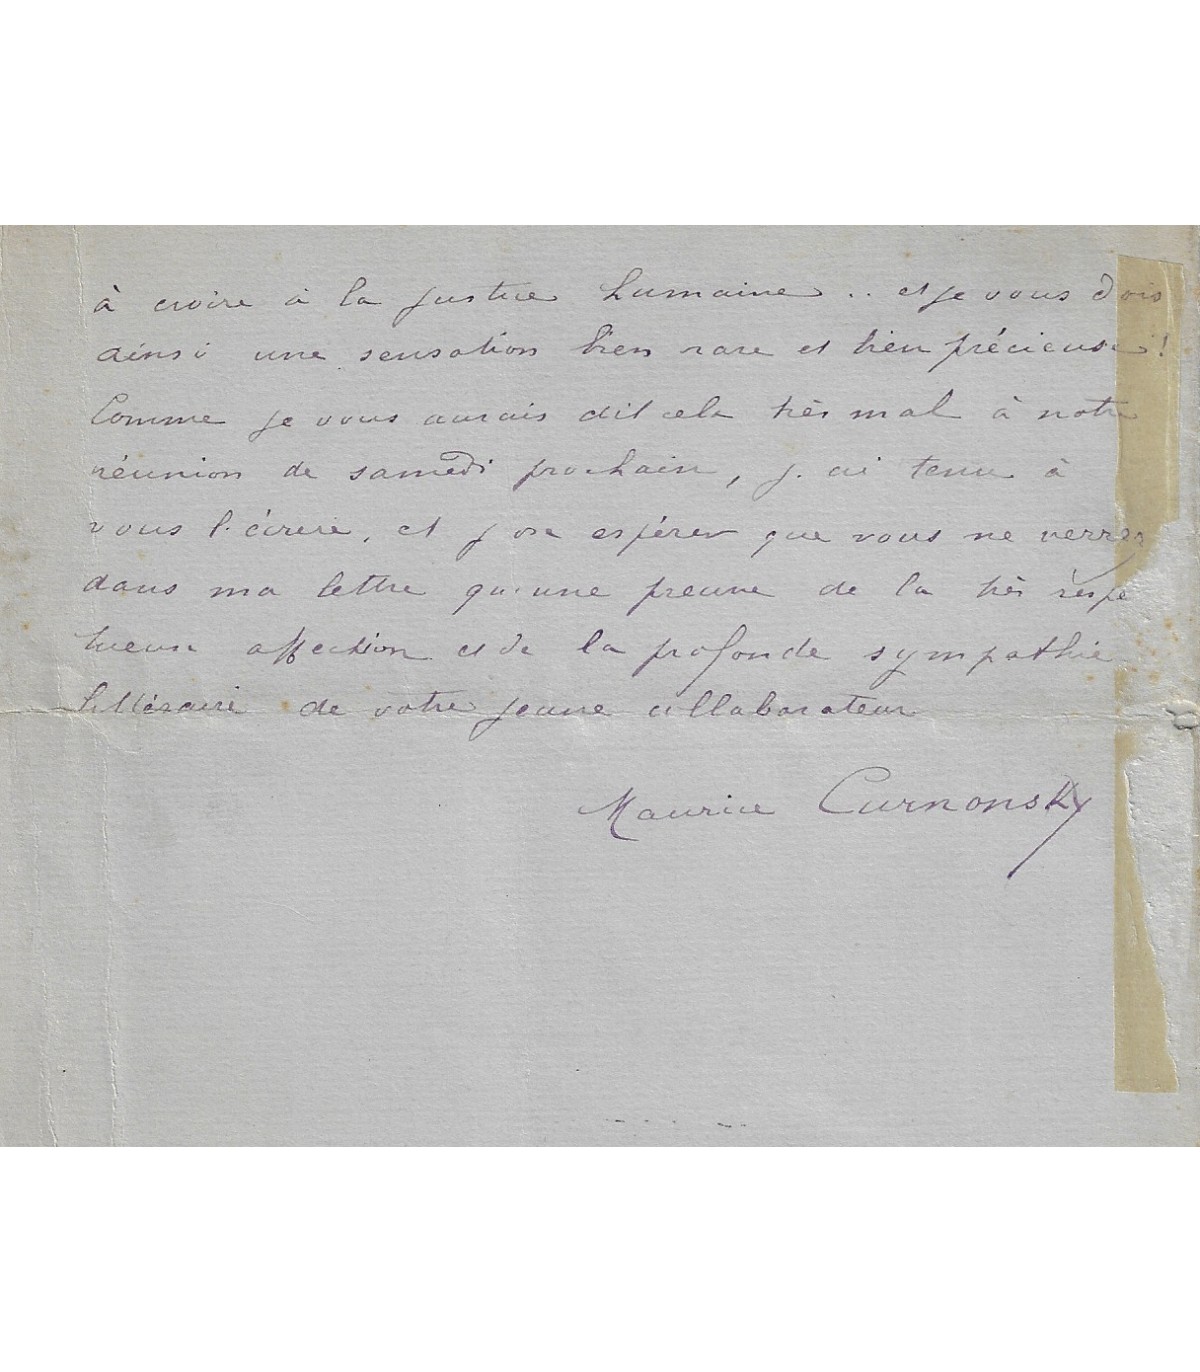 à croire à la justice humaine .. et je vous dois
ainsi une sensation bien rare et bien précieuse !
Comme je vous aurais dit cela très mal à notre
réunion de samedi prochain, j'ai tenu à
vous l'écrire, et j'ose espérer que vous ne verrez
dans ma lettre qu'une preuve de la très respec
tueuse affection et de la profonde sympathie
littéraire de votre jeune collaborateur
Maurice Curnonsky